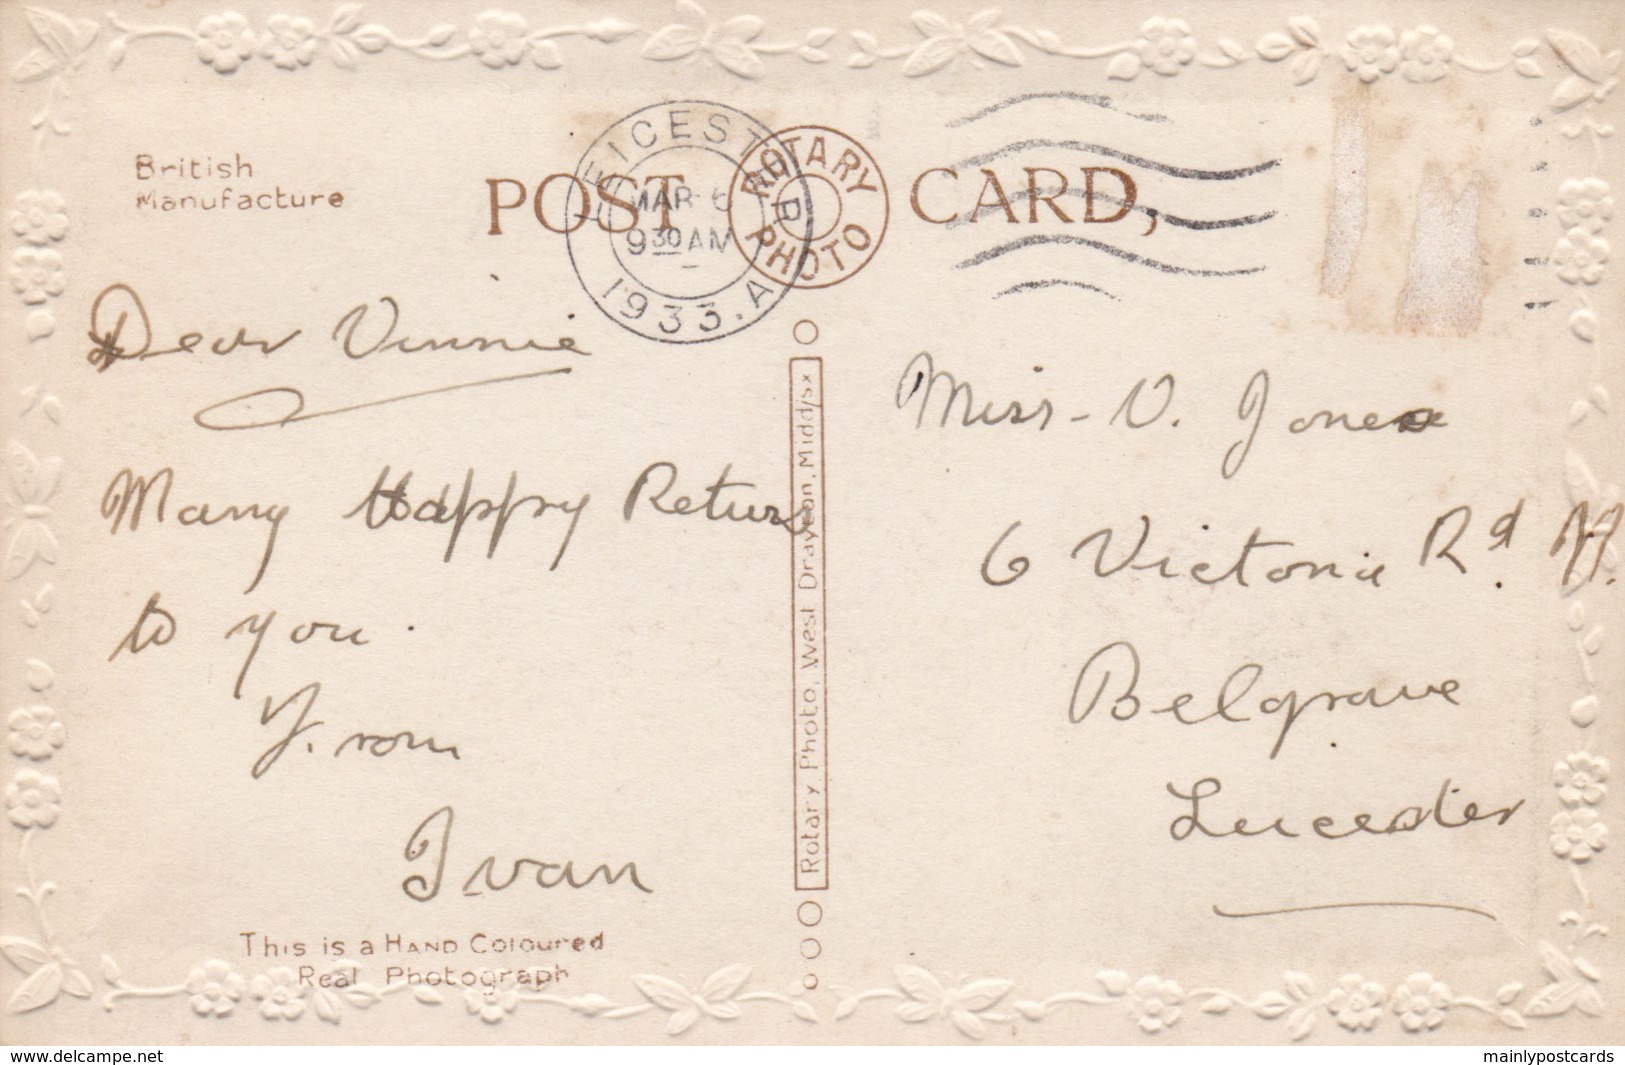 British
Manufacture
POST CARD,
ROTARY
PHOTO
LEICESTER
MAR 6
9 30 AM
1933. A
Dear Vinnie
Many Happy Returns
to you.
From
Ivan
This is a HAND Coloured
Real Photograph
Rotary Photo, West Drayton, Middlsx
Miss V. Jones
6 Victoria Rd. N.
Belgrave
Leicester
www.delcampe.net
mainlypostcards